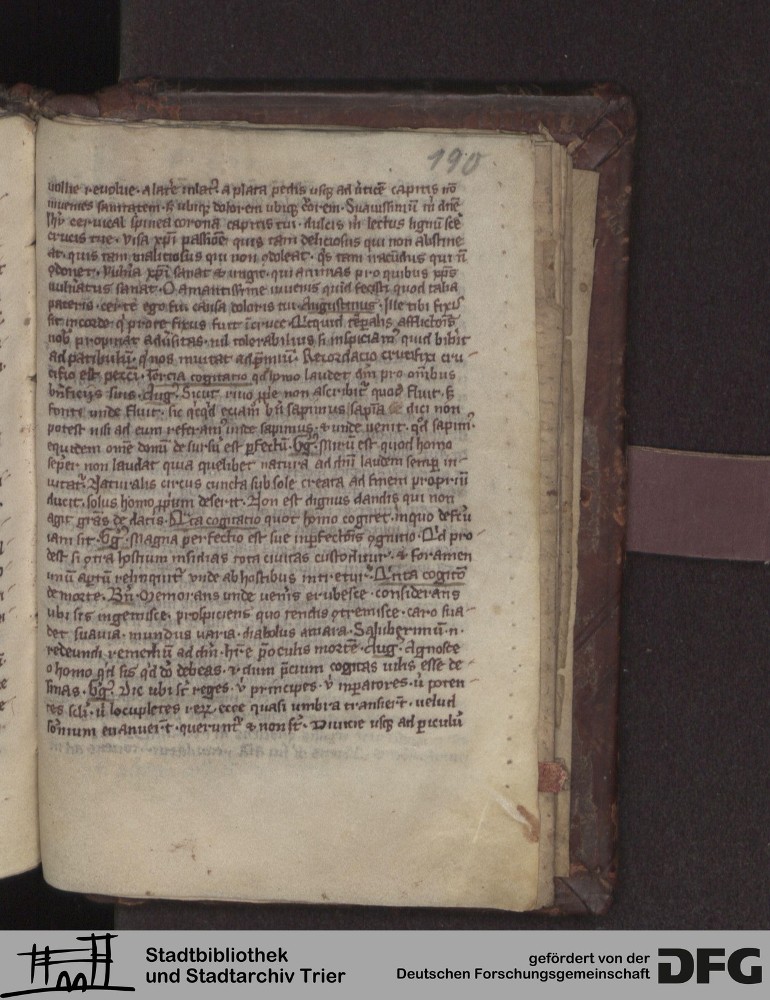 190
uolue reuolue. a latˀe in latˀ. a planta pedis usqꝫ ad uˀticē capitis nō
inuenies sanitatem. sꝫ ubiqꝫ dolorem ubiqꝫ cˀorem. Suauissimū m̄ dn̄e
ihū ceruical spinea corona capitis tui. dulcis m̄ lectus lignū sc̄e
crucis tue. Visa xpī passiōe quis tam deliciosus qui non abstine
at. quis tam malitiosus qui non doleat. qˢ tam iracūdus qui n̄
donet. Vulnˀa xpī sanat & ungit. qui animas pro quibus xpˢ
uulnˀatus sanat. O amantissime iuuenis quid fecisti quod talia
pateris. certe ego sū causa doloris tui. Augustinus. Ille tibi fixꝰ
sit in corde. qͥ pro te fixus fuit ī cruce. temp̄alis afflictōis
nob̄ propinat adūsitas. nil tolerabilius si inspiciat quid bibit
ad patibulū. qͥ nos inuitat ad p̄miū. Recordatio crucifixi cru-
cifio est pecci. Tercia cogitatio qd̄ homo laudet dm̄ pro omībus
bn̄ficijs suis. Aug. Sicut riuo ille non ascribitˀ quod fluit. sꝫ
fonti unde fluit. sic qͥcqͥd etiam bn̄ sapimus sapīa dici non
potest nisi ad eum referamˀ inde sapimus. & unde uenit. qd̄ sapimˀ.
equidem omē donū de sursū est p̄fectū. Gg. Mirū est quod homo
sēper non laudat quia quelibet natura ad dn̄i laudem semp̄ in-
uitatˀ. Naturalis circus cuncta sub sole creata ad finem propriū
ducit. solus homo p̄prium deserit. Non est dignus dandis qui non
agit grās de datis. Qͣrta cogitatio quot homo cogitet in quo defcū
iam sit. Gg. Magna perfectio est sue inp̄fectōis cognitio. Qͥd pro-
dest si cōtra hostium insidias tota ciuitas custoditur. & foramen
unū aptū relinquitˀ unde ab hostibus intretur. Qͥnta cogitō
de morte. Bn̄. Memorans unde ueneris erubesce. considerans
ubi sis ingemisce. prospiciens quo tendis cōtremisce. caro sua-
det suauia. mundus uaria. diabolus amara. Saluberrimū n.
redeundi remediū ad dm̄. hˀe p̄ oculis mortē. Aug. Agnosce
o homo qͥd sis qͥd dō debeas. & dum p̄cium cogitas uilis esse de-
sinas. Gg. Dic ubi sˀt reges. ū principes. ū inp̄atores. ū poten-
tes scli. ū locupletes rerꝫ. ecce quasi umbra transierˀt. uelud
somnium euanuerˀt. queruntˀ & non sˀt. Diuicie usqꝫ ad p̄iculū
Stadtbibliothek
und Stadtarchiv Trier
gefördert von der
Deutschen Forschungsgemeinschaft
DFG